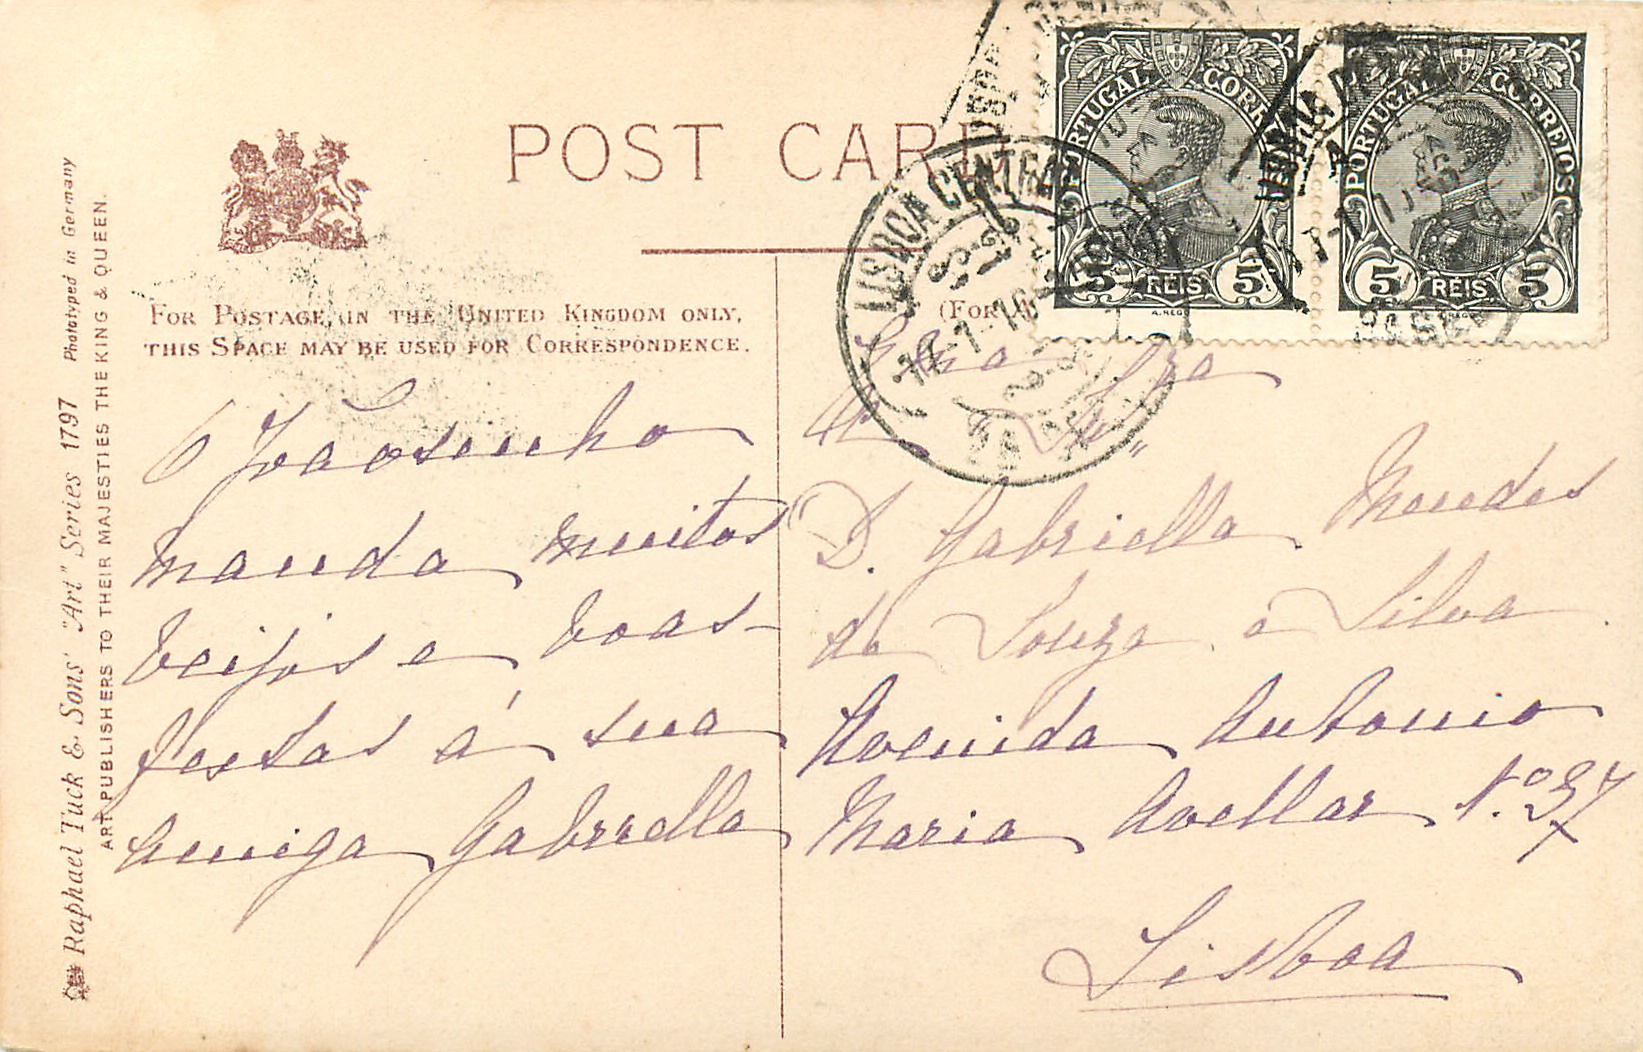 POST CARD
FOR POSTAGE, IN THE UNITED KINGDOM ONLY,
THIS SPACE MAY BE USED FOR CORRESPONDENCE.
(FOR
Raphael Tuck & Sons' "Art" Series 1797 Phototyped in Germany
ART PUBLISHERS TO THEIR MAJESTIES THE KING & QUEEN.
PORTUGAL CORREIOS
5 REIS 5
PORTUGAL CORREIOS
5 REIS 5
LISBOA CENTRAL
O Joãosinho
manda muitos
beijos e boas-
festas á sua
amiga Gabriella
Sra
D. Gabriella Mendes
de Souza e Silva
Avenida Antonio
Maria Avellar Nº 37
Lisboa